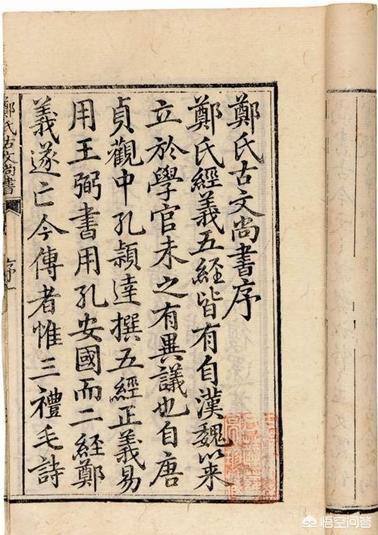 鄭氏古文尚書序
鄭氏經義五經皆有自漢魏以來
立於學官未之有異議也自唐
貞觀中孔穎達撰五經正義易
用王弼書用孔安國而二經鄭
義遂亡今傳者惟三禮毛詩
鄭氏古文尚書
序一
悟空问答